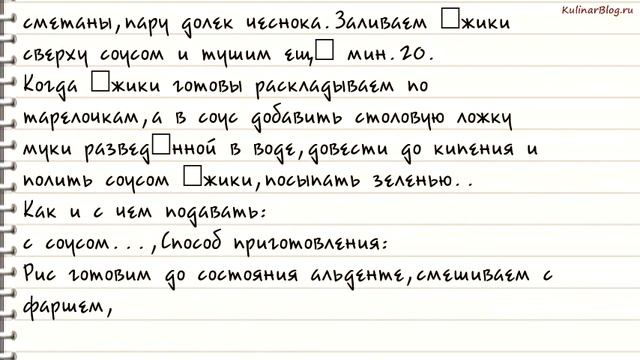 KulinarBlog.ru
сметаны,пару долек чеснока.Заливаем □жики
сверху соусом и тушим ещ□ мин.20.
Когда □жики готовы раскладываем по
тарелочкам,а в соус добавить столовую ложку
муки развед□нной в воде,довести до кипения и
полить соусом □жики,посыпать зеленью..
Как и с чем подавать:
с соусом...,Способ приготовления:
Рис готовим до состояния альденте,смешиваем с
фаршем,